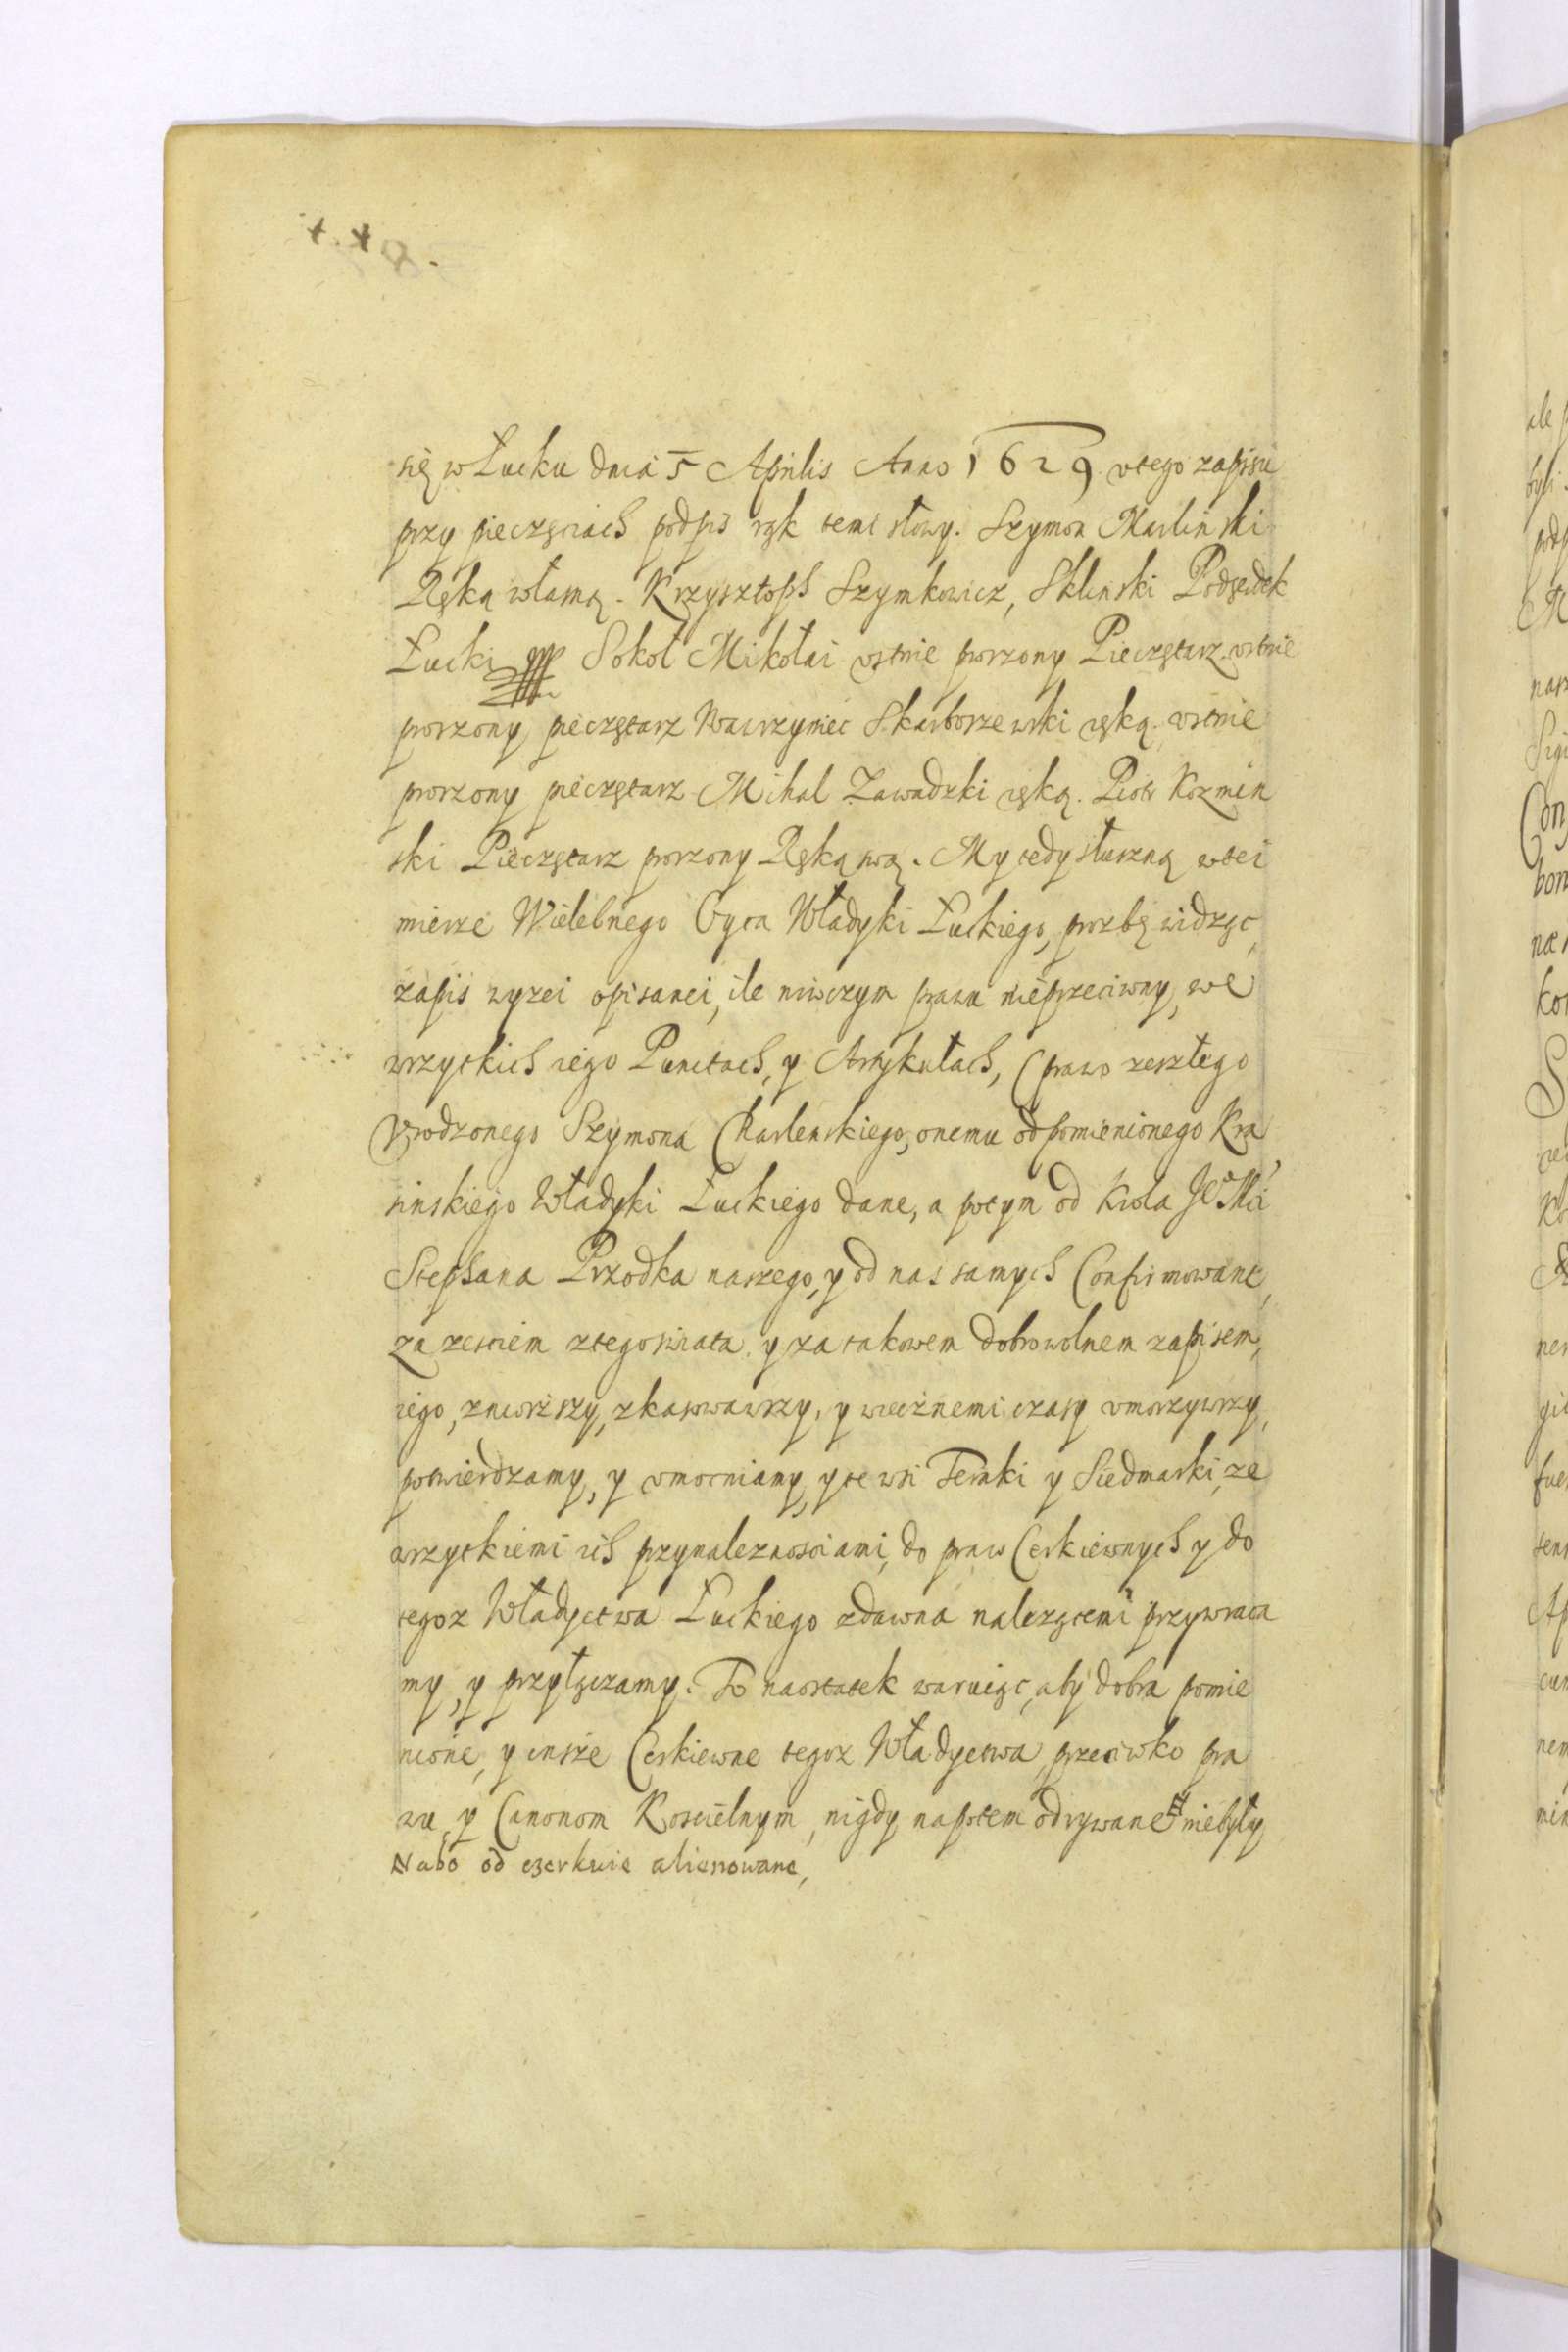 się w Łucku dnia 5 Aprilis Anno 1629 v tego zapisu
przy pieczęciach podpis ręk temi słowy. Szymon Karliński
Ręką własną. Krzysztoph Szymkowicz, Skliński Podsędek
Łucki Sokoł Mikołai vstnie proszony Pieczętarz. vstnie
proszony pieczętarz Wawrzyniec Skarborzewski ręką. vstnie
proszony pieczętarz Mihal Zawadzki ręką. Piotr Kozmin
ski Pieczętarz proszony Ręką swą. My tedy słuszną w tei
mierze Wielebnego Oyca Władyki Łuckiego, prozbę widząc,
zapis wyzei opisanei, ile niwczym prawu nieprzeciwny, we
wszytkich iego Punctach, y Artykułach, (prawo zeszłego
Vrodzonego Szymona Charlenskiego, onemu od pomienionego Kra
sinskiego Władyki Łuckiego dane, a potym od Krola Jeo Mći
Stephana Przodka naszego, y od nas samych Confirmowane,
za zesciem z tego swiata, y za takowem dobrowolnem zapisem,
iego, zniozszy, skasowawszy, y wiecznemi czasy vmorzywszy,
potwierdzamy, y vmocniamy, y te wsi Teremki y Siedmarki, ze
wszytkiemi ich przynaleznosciami, do praw Cerkiewnych y do
tegoz Władyctwa Łuckiego zdawna nalezącemi przywraca
my, y przyłączamy. To naostatek waruiąc, aby dobra pomie
nione, y insze Cerkiewne tegoz Władyctwa, przeciwko pra
wu, y Canonom Koscielnym, nigdy napotem odrywane # niebyły
# abo od czerkwie alienowane,